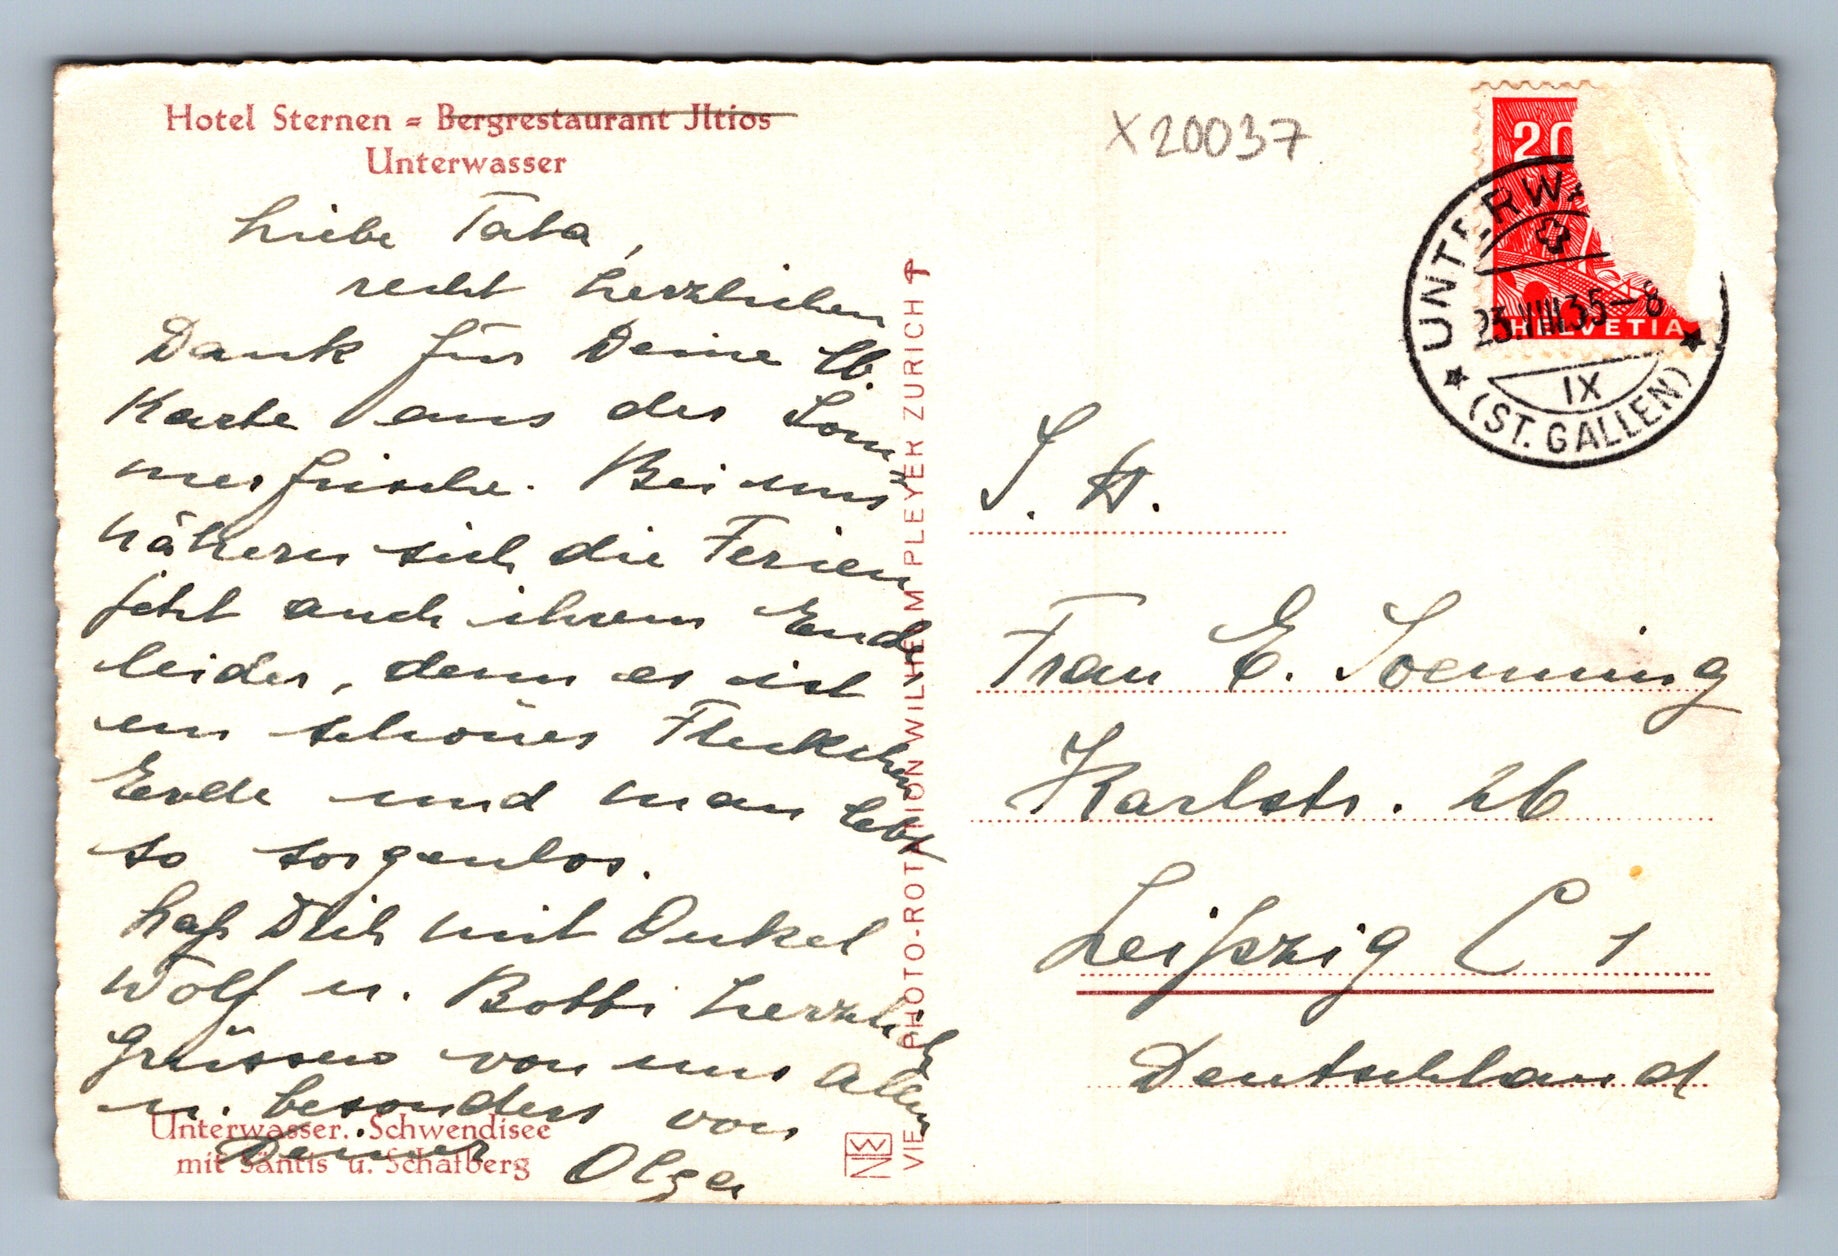 Hotel Sternen = Bergrestaurant Iltios
Unterwasser
Liebe Tata,
recht herzlichen
Dank für Deine lb.
Karte aus der Som-
merfrische. Bei uns
nähern sich die Ferien
jetzt auch ihrem Ende
leider, denn es ist
ein schönes Fleckchen
Erde und man lebt
so sorgenlos.
Laß Dich mit Onkel
Wolf u. Bobbi herzlich
Grüssen von uns Allen
u. besonders von
Deiner Olga
Unterwasser. Schwendisee
mit Säntis u. Schafberg
PHOTO-ROTATION WILHELM PLEYER ZURICH
VIE
X20037
20
HELVETIA
UNTERWA
23.VIII.35-8
IX
(ST. GALLEN)
S. H.
Frau E. Soenning
Karlstr. 26
Leipzig C 1
Deutschland